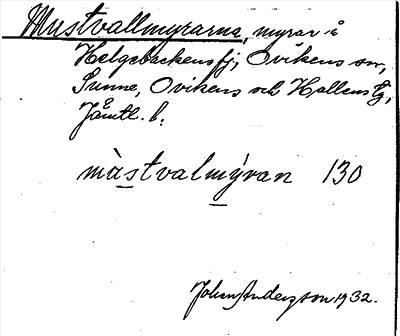 Mustvallmyrarna, myrar å
Helgebackens fj, Ovikens sn,
Sunne, Ovikens och Hallens tg,
Jämtl. l.
mùstvalmýran 130
Johan Anderzson 1932.